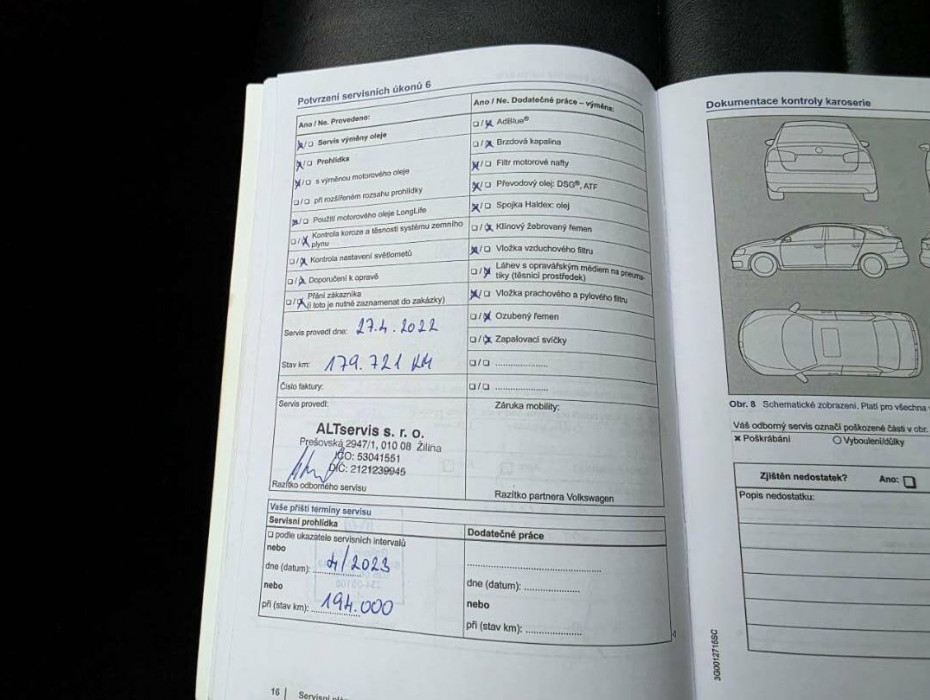 Potvrzení servisních úkonů 6
Ano / Ne. Provedeno:
Servis výměny oleje
Prohlídka
s výměnou motorového oleje
při rozšířeném rozsahu prohlídky
Použití motorového oleje LongLife
Kontrola koroze a těsnosti systému zemního
plynu
Kontrola nastavení světlometů
Doporučení k opravě
Přání zákazníka
(i toto je nutné zaznamenat do zakázky)
Servis provedl dne: 27.4.2022
Stav km: 179.721 KM
Číslo faktury:
Servis provedl:
ALTservis s. r. o.
Prešovská 2947/1, 010 08 Žilina
IČO: 53041551
DIČ: 2121239945
Razítko odborného servisu
Ano / Ne. Dodatečné práce – výměna:
AdBlue®
Brzdová kapalina
Filtr motorové nafty
Převodový olej: DSG®, ATF
Spojka Haldex: olej
Klínový žebrovaný řemen
Vložka vzduchového filtru
Láhev s opravářským médiem na pneuma-
tiky (těsnicí prostředek)
Vložka prachového a pylového filtru
Ozubený řemen
Zapalovací svíčky
Záruka mobility:
Razítko partnera Volkswagen
Vaše příští termíny servisu
Servisní prohlídka
podle ukazatele servisních intervalů
nebo
dne (datum): 4/2023
nebo
při (stav km): 194.000
Dodatečné práce
dne (datum):
nebo
při (stav km):
16
Servisní
Dokumentace kontroly karoserie
Obr. 8 Schematické zobrazení. Platí pro všechna
Váš odborný servis označí poškozené části v obr.
Poškrábání
Vyboulení/důlky
Zjištěn nedostatek? Ano:
Popis nedostatku:
3G0012716SC